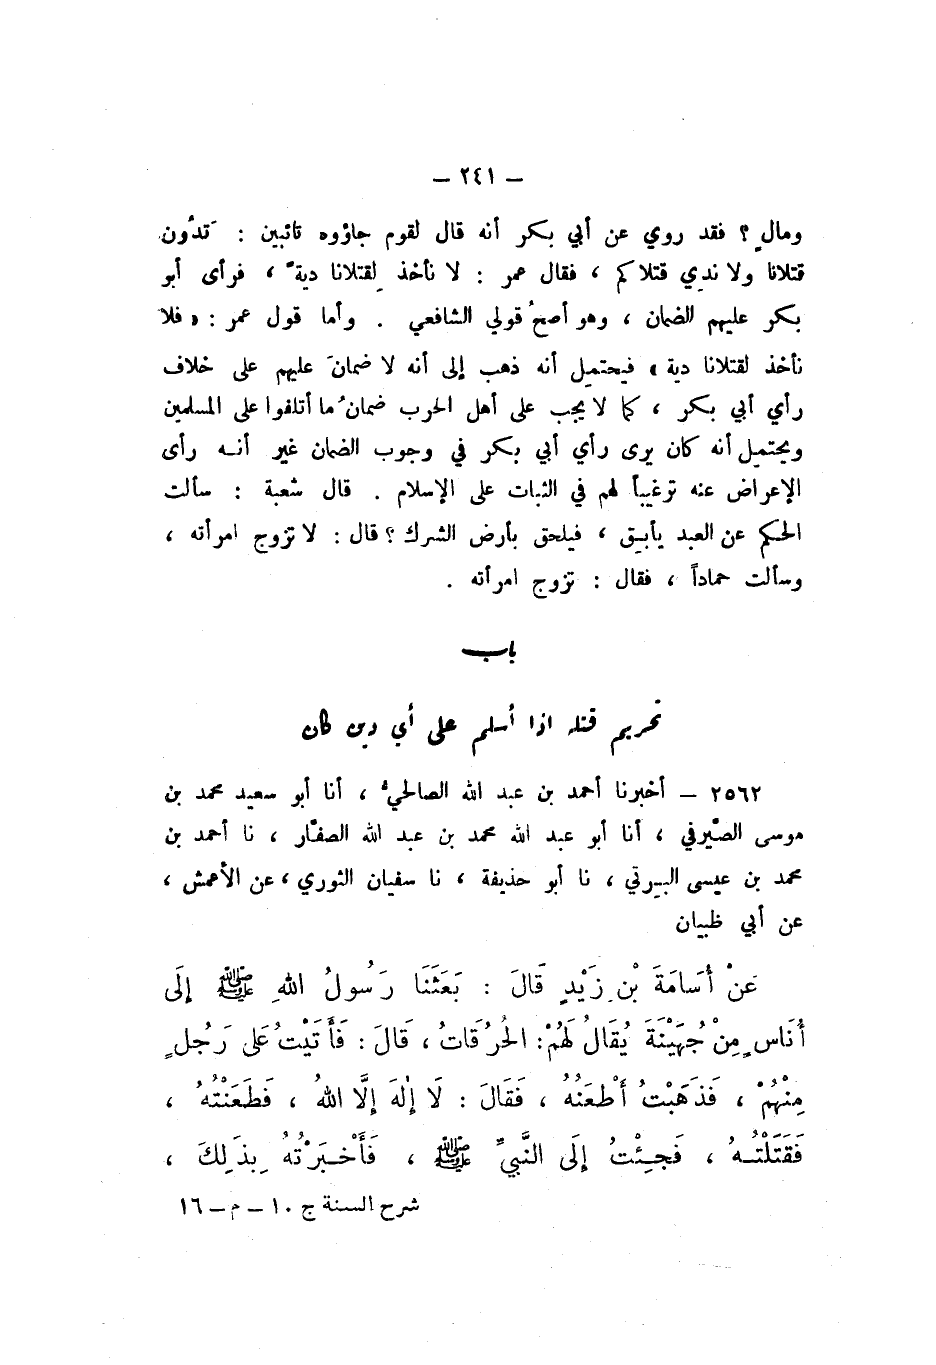 – ٢٤١ –
ومالٍ ؟ فقد روي عن أبي بكر أنه قال لقوم جاؤوه تائبين : تَدُون
قتلانا ولا نَدِي قتلاكم ، فقال عمر : لا نأخذ لِقتلانا ديةً ، فرأى أبو
بكر عليهم الضمان ، وهو أصحُ قولي الشافعي . وأما قول عمر : « فلا
نأخذ لقتلانا دية » فيحتمل أنه ذهب إلى أنه لا ضمانَ عليهم على خلاف
رأي أبي بكر ، كما لا يجب على أهل الحرب ضمانُ ما أتلفوا على المسلمين
ويحتمل أنه كان يرى رأي أبي بكر في وجوب الضمان غير أنه رأى
الإعراض عنه ترغيباً لهم في الثبات على الإسلام . قال شعبة : سألت
الحكم عن العبد يأبِق ، فيلحق بأرض الشرك ؟ قال : لا تزوج امرأته ،
وسألت حماداً ، فقال : تزوج امرأته .
باب
تحريم قتله اذا أسلم على أي دين كان
٢٥٦٢ – أخبرنا أحمد بن عبد الله الصالحيُ ، أنا أبو سعيد محمد بن
موسى الصَّيرفي ، أنا أبو عبد الله محمد بن عبد الله الصفَّار ، نا أحمد بن
محمد بن عيسى البِرتي ، نا أبو حذيفة ، نا سفيان الثوري ، عن الأعمش ،
عن أبي ظبيان
عَنْ أُسَامَةَ بْنِ زَيْدٍ قَالَ : بَعَثَنَا رَسُولُ اللهِ ﷺ إِلَى
أُنَاسٍ مِنْ جُهَيْنَةَ يُقَالُ لَهُمْ : الْحُرُقَاتُ ، قَالَ : فَأَتَيْتُ عَلَى رَجُلٍ
مِنْهُمْ ، فَذَهَبْتُ أَطْعَنُهُ ، فَقَالَ : لَا إِلٰهَ إِلَّا اللهُ ، فَطَعَنْتُهُ ،
فَقَتَلْتُهُ ، فَجِئْتُ إِلَى النَّبِيِّ ﷺ ، فَأَخْبَرْتُهُ بِذَلِكَ ،
شرح السنة ج ١٠ – م – ١٦